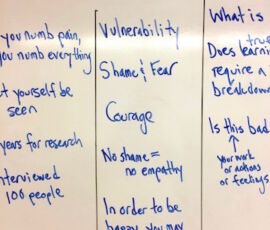 you numb pain,
you numb everything
yourself be
seen
years for research
interviewed
100 people
Vulnerability
Shame & Fear
Courage
No shame =
no empathy
In order to be
happy you may
What is
true
Does learning
require a
breakdown
Is this bad
↑
your work
or actions
or feelings